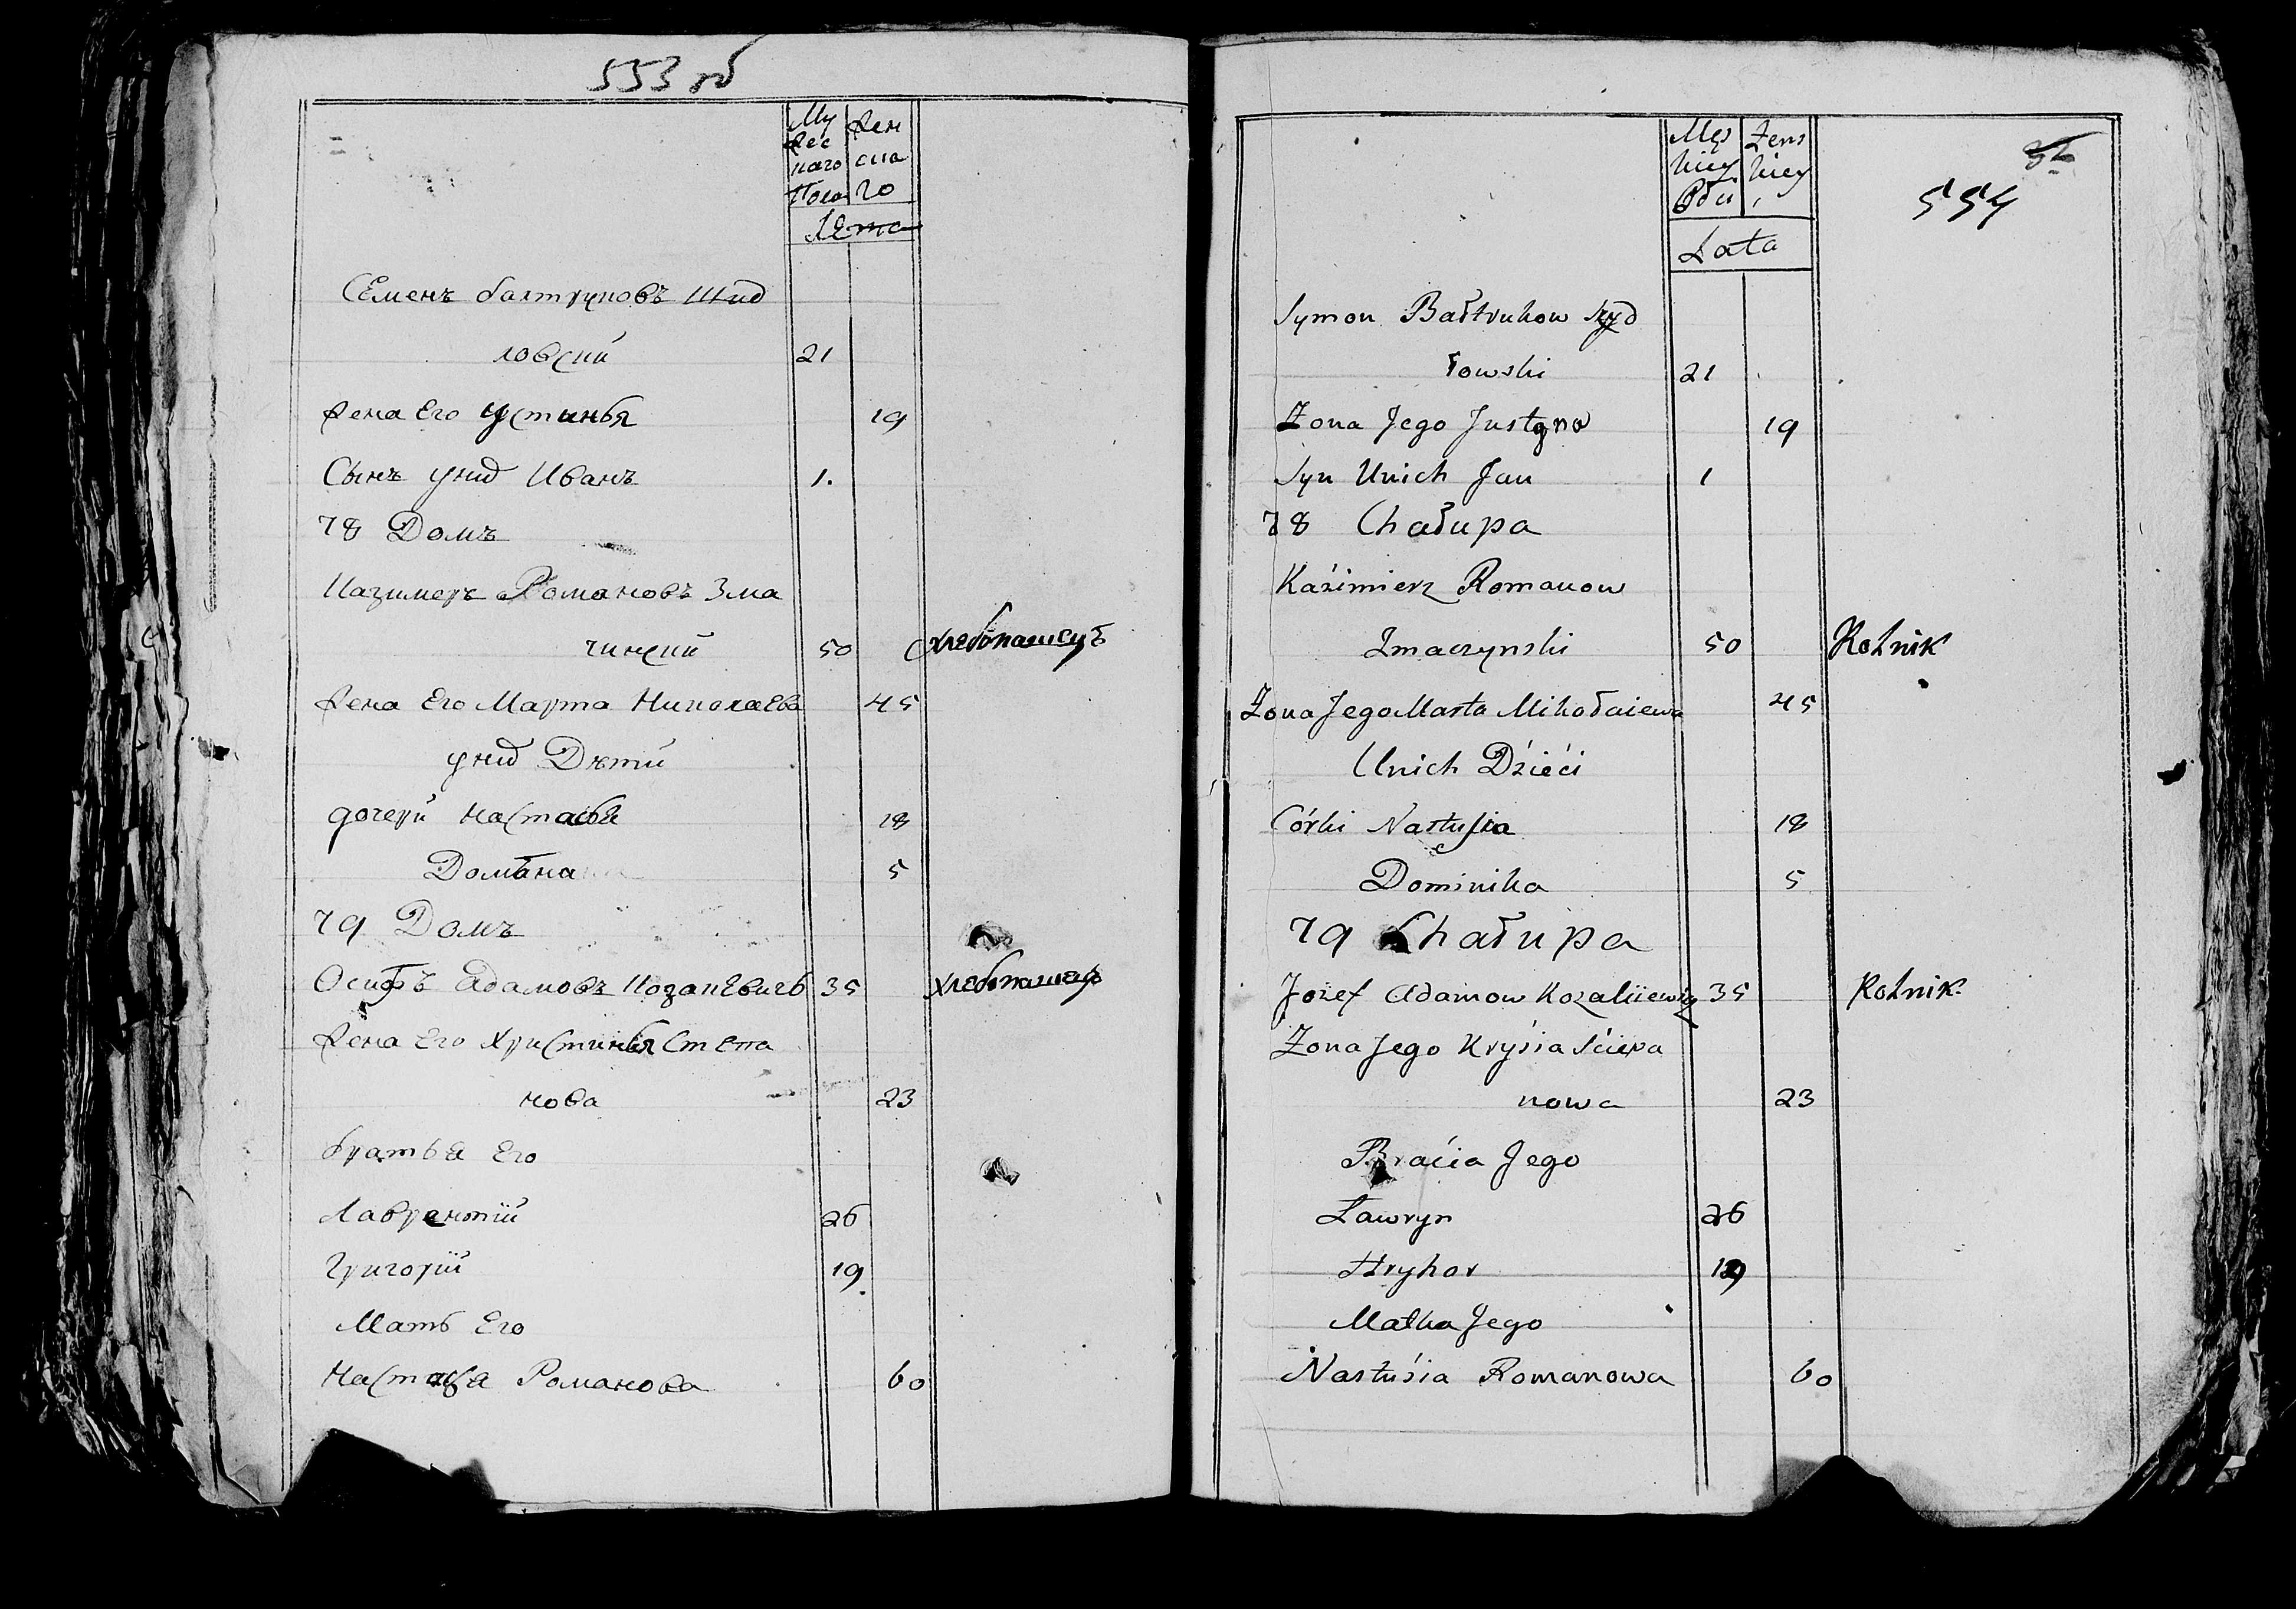 553 об
Му
жес
каго
Пола
Жен
ска
го
Лета
Семенъ балтруковъ Шид
ловскій 21
Жена Его Устинья 19
Сынъ унид Иванъ 1.
78 Домъ
Казимеръ Романовъ Зма
чинскій 50 Хлебопашецъ
Жена Его Марта Николаева 45
унид Дѣти
дочери Настасья 18
Домъна 5
79 Домъ
Осипъ Адамовъ Козакевичъ 35 Хлебопашецъ
Жена Его Христинья Степа
нова 23
братья Его
Лаврентій 26
Григорій 19.
Мать Его
Настася Романова 60
Męs
kiey
Płci
Żens
kiey
Lata
554
Symon Bałtrukow Szyd
łowski 21
Żona Jego Justyna 19
Syn Unich Jan 1
78 Chałupa
Kaźimierz Romanow
Zmaczynski 50 Rolnik
Żona Jego Marta Mikołaiewa 45
Unich Dźieći
Córki Nastusia 18
Dominika 5
79 Chałupa
Jozef Adamow Kozakiewicz 35 Rolnik.
Żona Jego Kryśia Śćiepa
nowa 23
Braćia Jego
Ławryn 26
Hryhor 19
Matka Jego
Nastuśia Romanowa 60